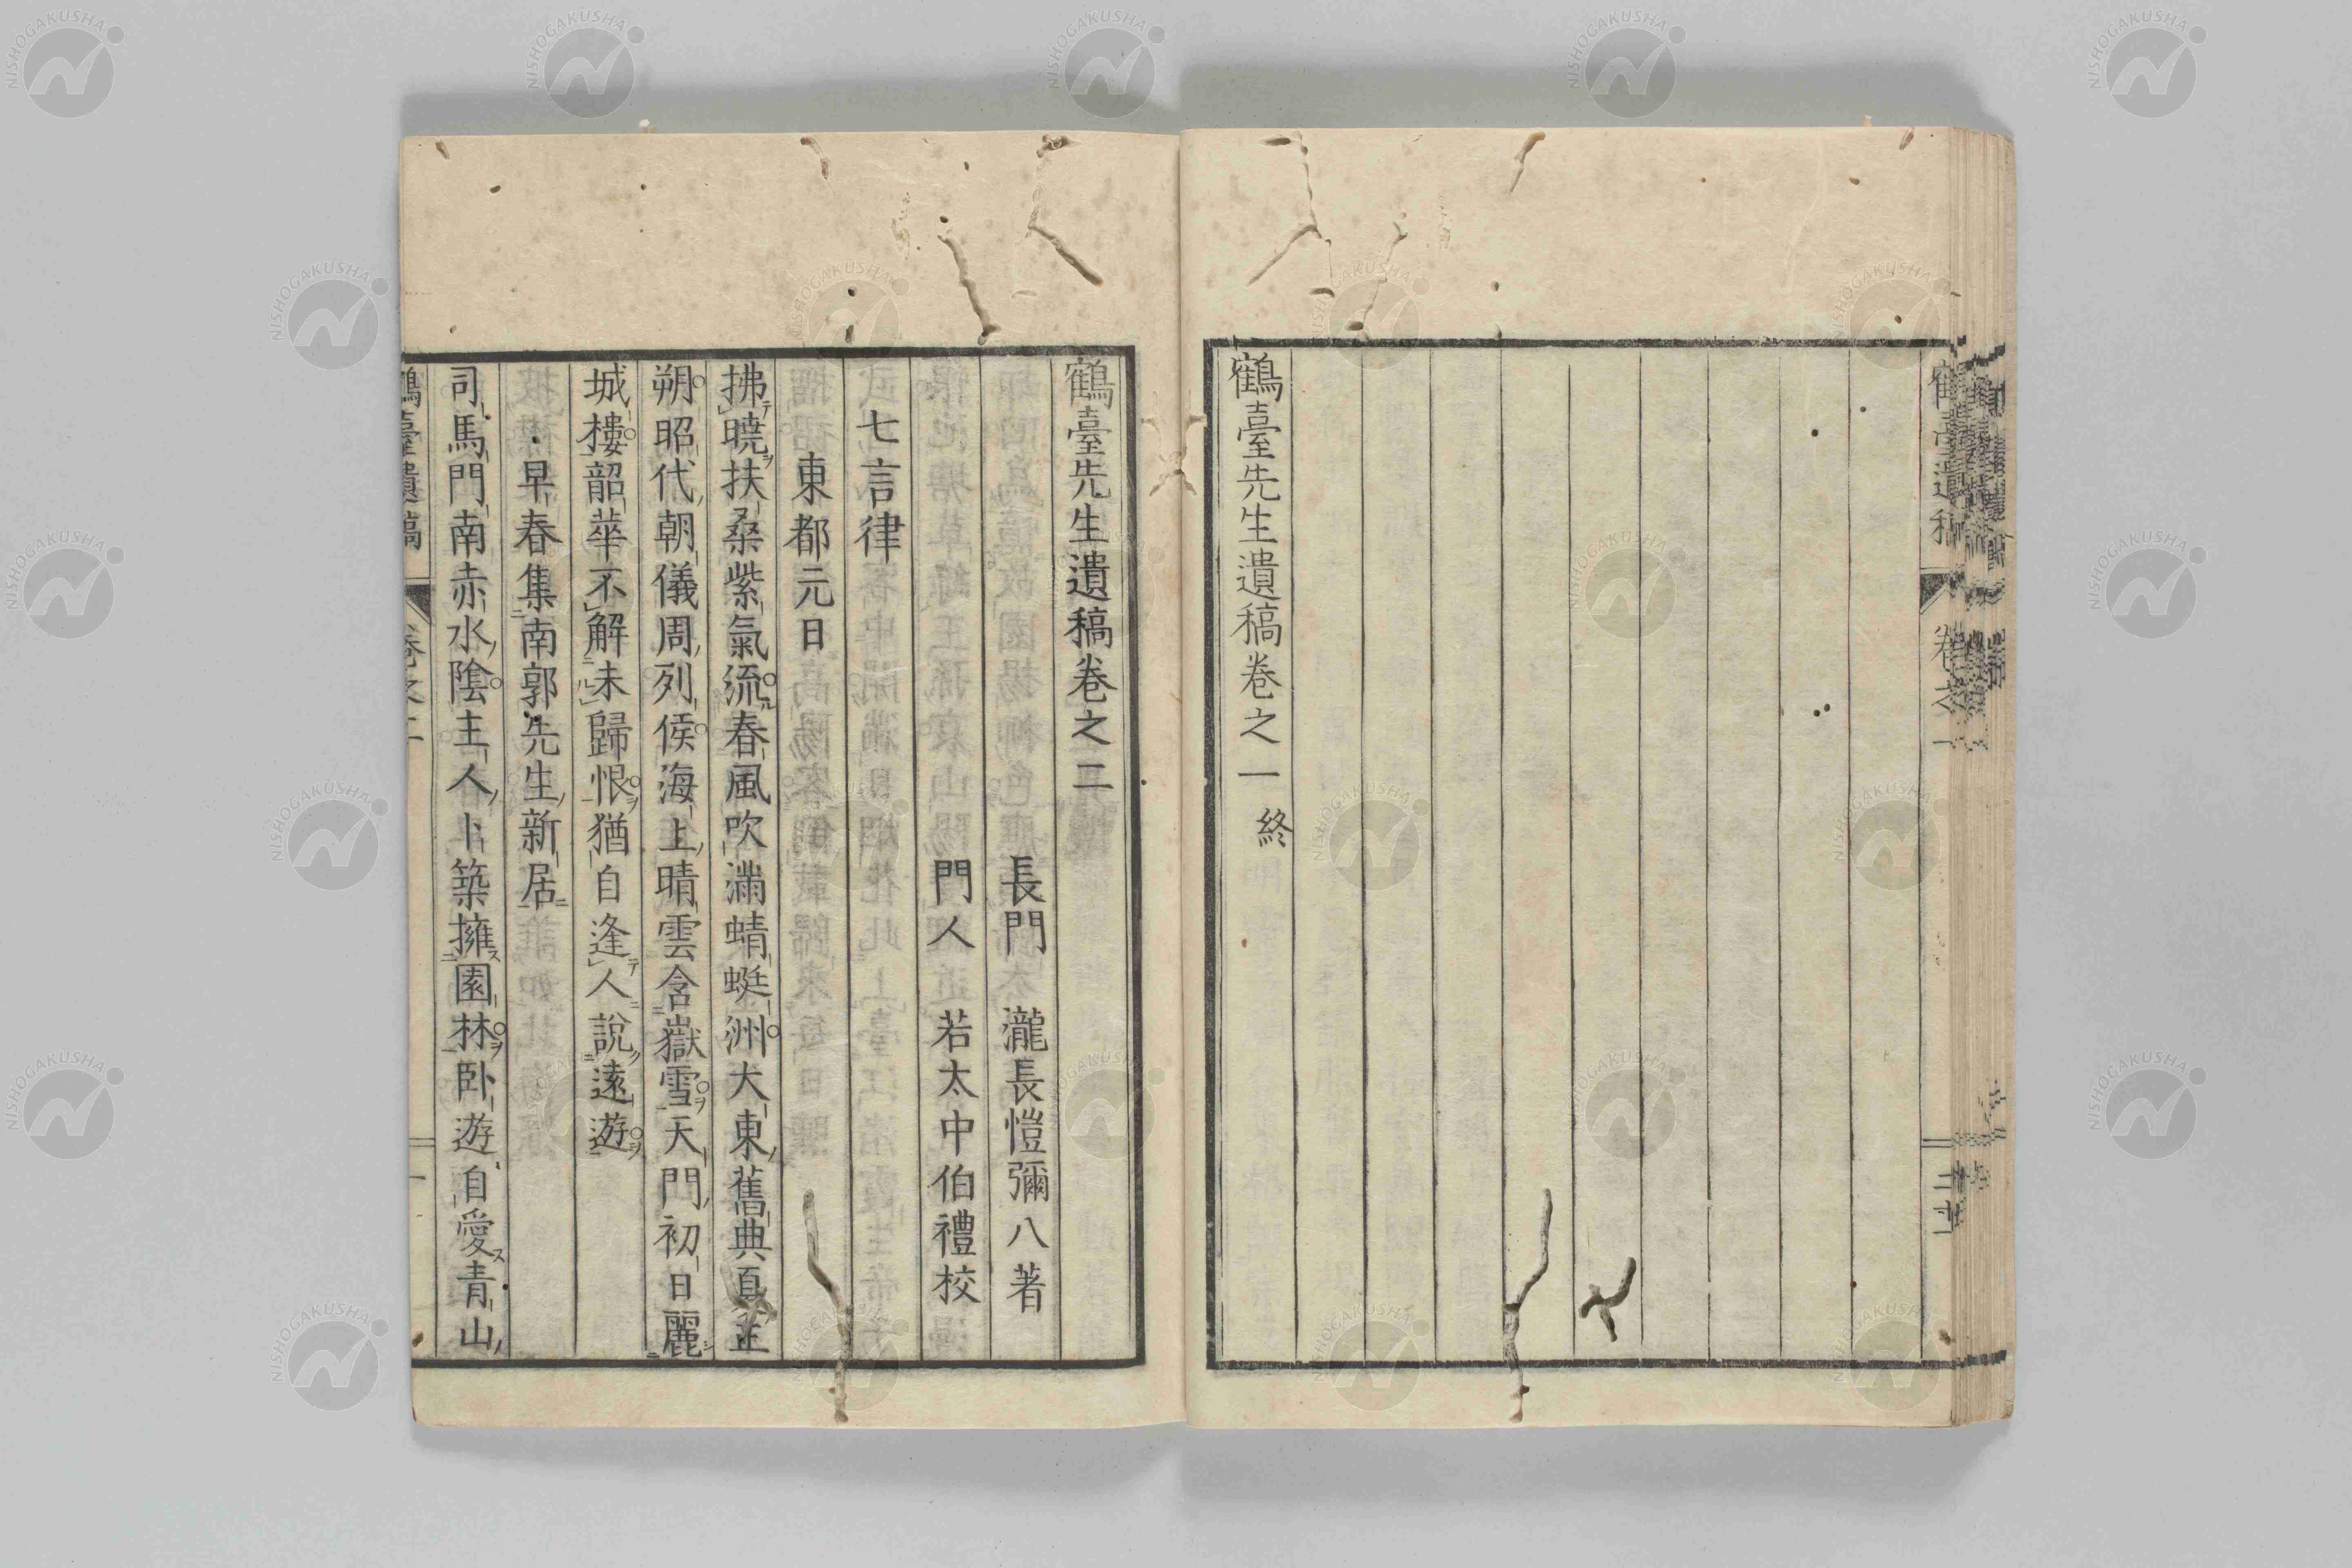 鶴臺先生遺稿卷之一 終
鶴臺先生遺稿卷之二
長門 瀧長愷彌八著
門人 若太中伯禮校
七言律
東都元日
拂曉扶桑紫氣流春風吹滿蜻蜓洲大東舊典夏正
朔昭代朝儀周列侯海上晴雲含嶽雪天門初日麗
城樓韶華不解未歸恨猶自逢人說遠遊
早春集南郭先生新居
司馬門南赤水陰主人卜築擁園林臥遊自愛青山
鶴臺遺稿 卷之二 一
NISHOGAKUSHA